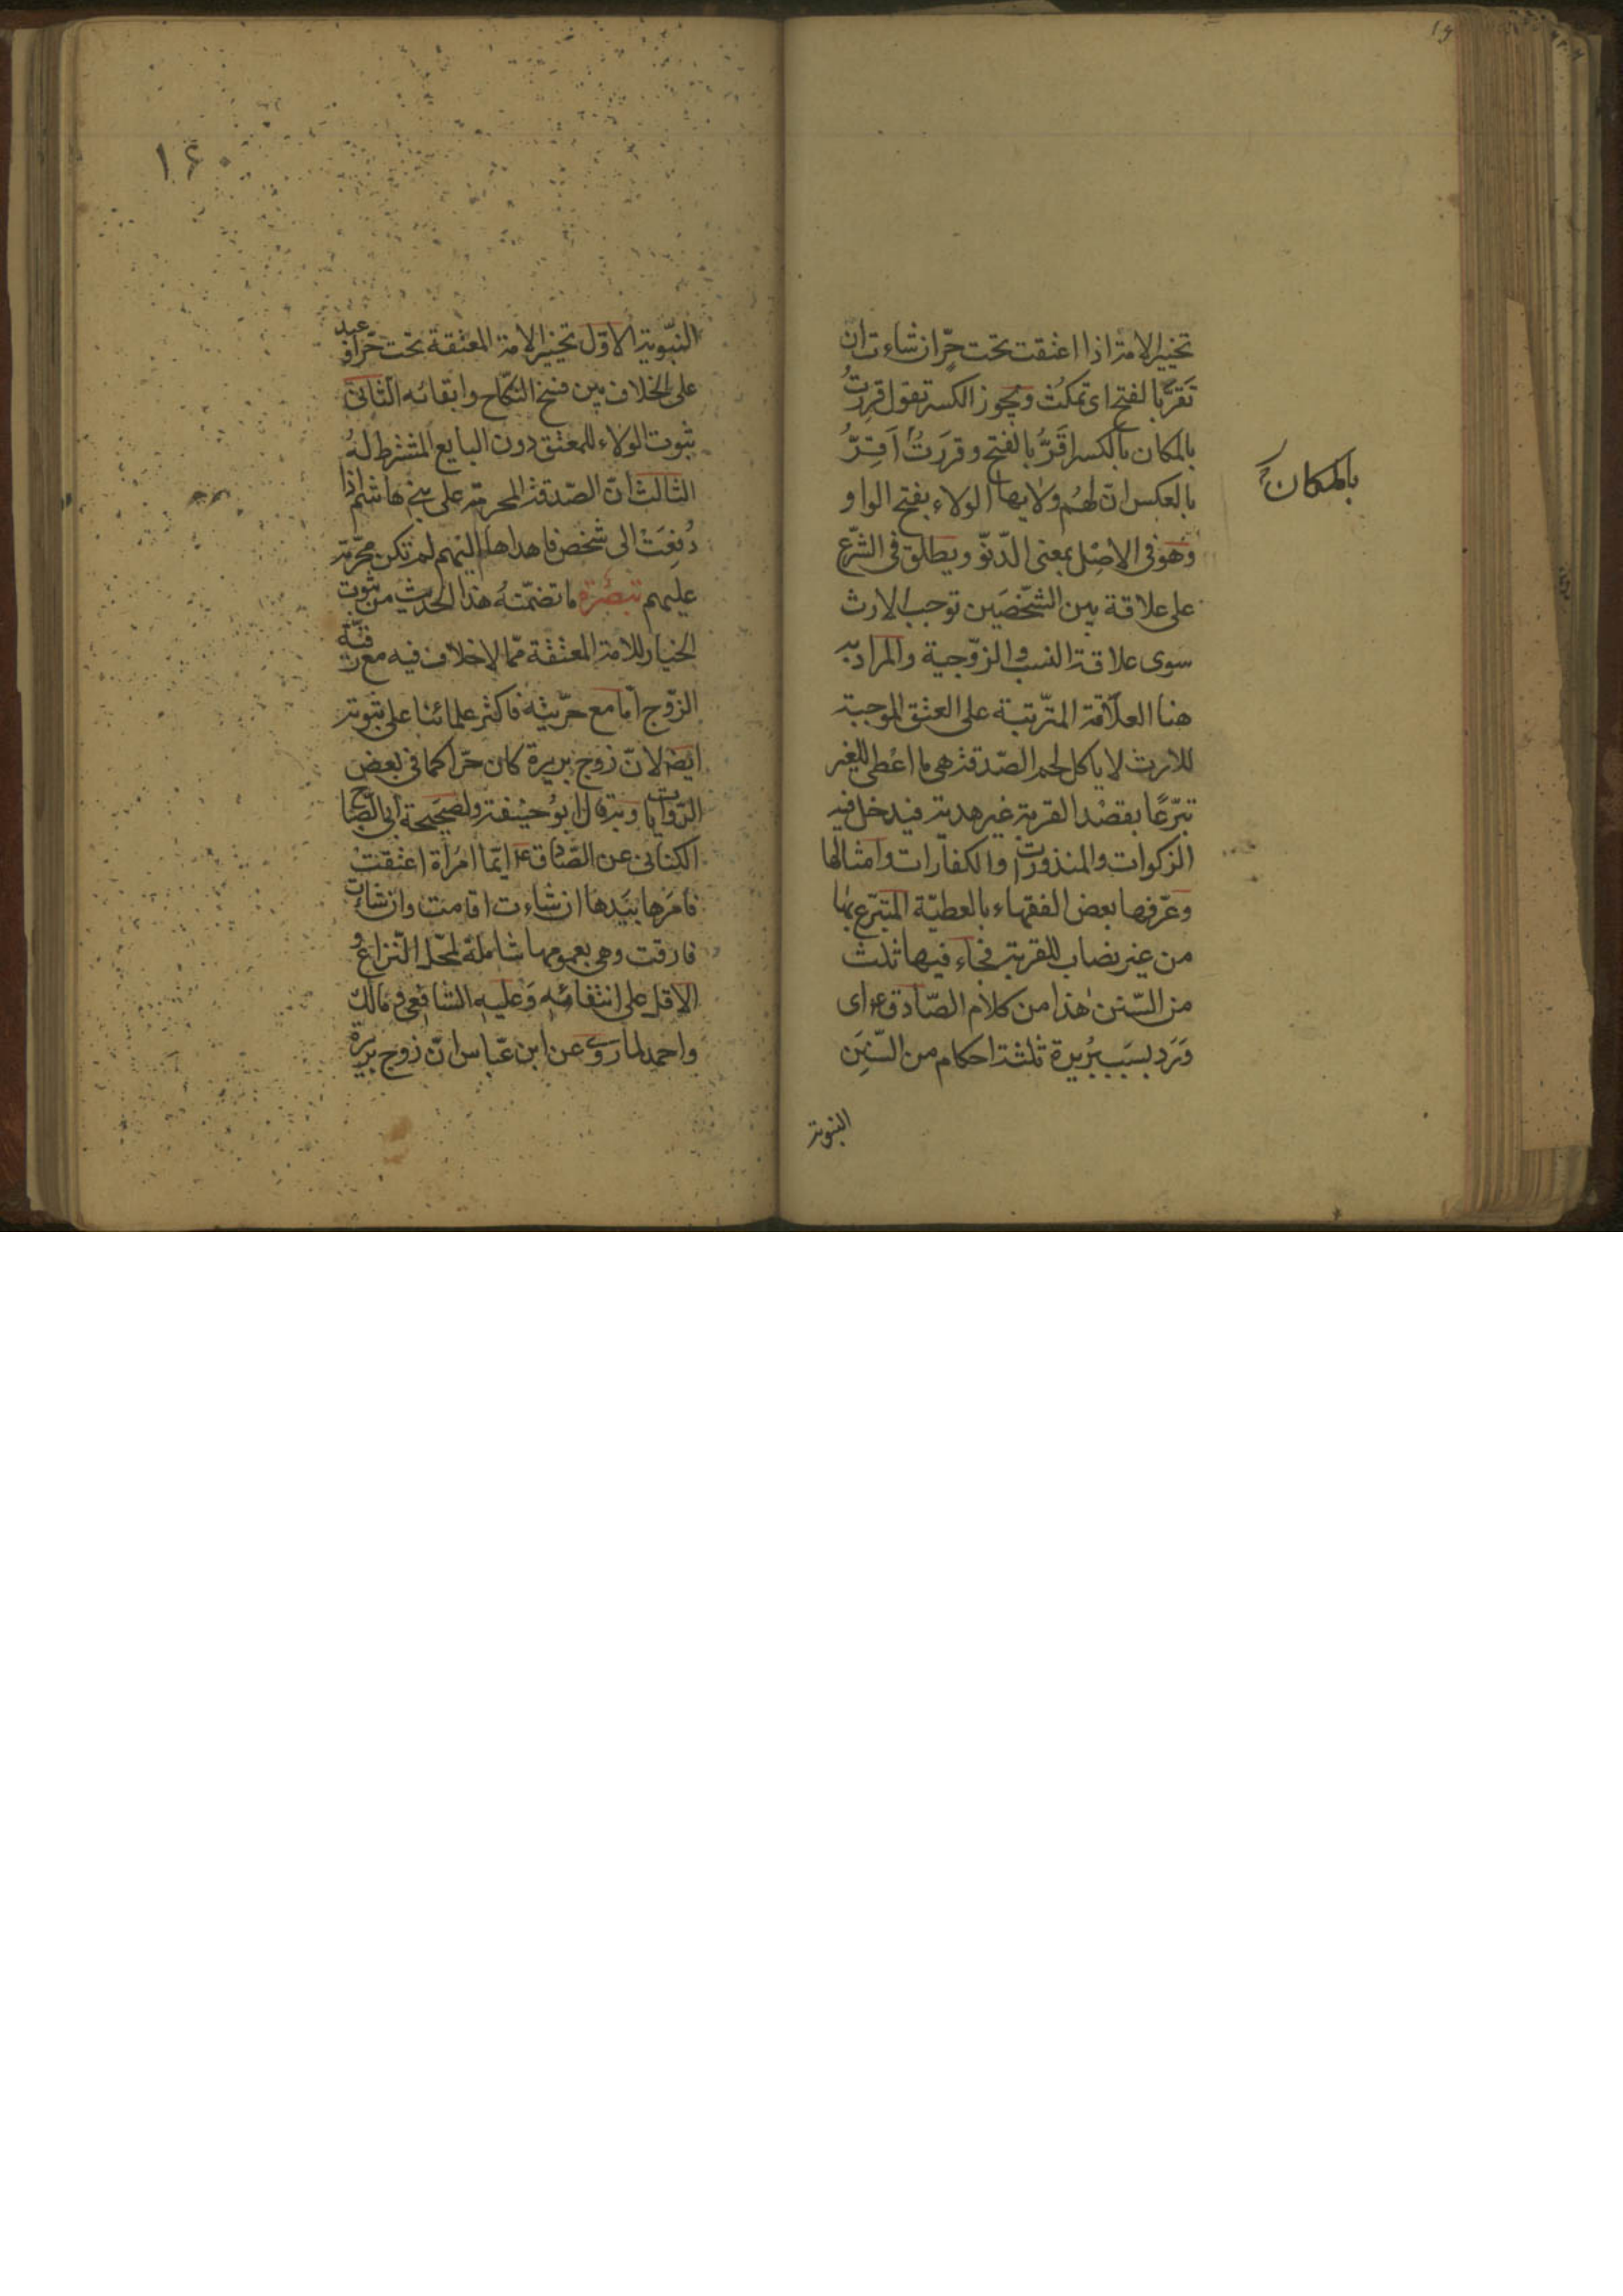 تخيير الامة اذا اعتقت تحت حرّ ان شاءت ان
تَقَرَّ بالفتح اى تمكُث ويجوز الكسر تقول قرِرتُ
بالمكان بالكسر اقَرُّ بالفتح وقرَرتُ اَقِرُّ
بالمكان
بالعكس انّ لهُم ولايها الولاء بفتح الواو
وهو فى الاصل بمعنى الدّنوّ ويطلق فى الشّرع
على علاقة بين الشّخصَين توجب الارث
سوى علاقة النسب والزّوجية والمراد به
هنا العلاقة المترّتبة على العتق الموجبة
للارث لا ياكل لحم الصّدقة هى ما اعْطى للغير
تبرّعًا بقصْد القربة غير هدية فيدخل فيه
الزكوات والمنذورات والكفارات وامثالها
وعرّفها بعض الفقهاء بالعطيّة المتبرّع بها
من غير نصاب للقربة فجاء فيها ثلث
من السّنن هٰذا من كلام الصّادق ع اى
وَرَد بسَبب بُريرة ثلثة احكام من السّنَن
النبوية
١٤٠
النبّوية الاوّل تخيير الامة المعتقة تحت حرّ او عبد
على الخلاف بين فسخ النكّاح وابقائه الثانى
ثبوت الولاء للمعتق دون البايع المشترط لهُ
الثالث انّ الصّدقة المحرمة على بنى هاشم اذا
دُفِعَتْ الى شخص فاهداها اليهم لم تكن محرّمة
عليهم تبصُرة ما تضمّنهُ هذا الحديث من ثبوت
الخيار للامة المعتقة ممّا لا خلاف فيه مع رقيّة
الزّوج امّا مع حرّيته فاكثر علمائنا على ثبوته
ايضا لانّ زوج بريرة كان حرّا كما فى بعض
الرّوايات وبه قال ابُو حنيفة ولصَحيحة ابى الصّباح
الكنانى عن الصّادق ع ايّما امْرأة اعتقتْ
فامَرها بيَدها ان شاءت اقامت وان شاءت
فارقت وهى بعمومها شاملة لمحلّ النّزاع و
الاقل على انتفائه وَعليه الشافعى ومالك
واحمد لما روى عن ابن عبّاس انّ زوج بريرة